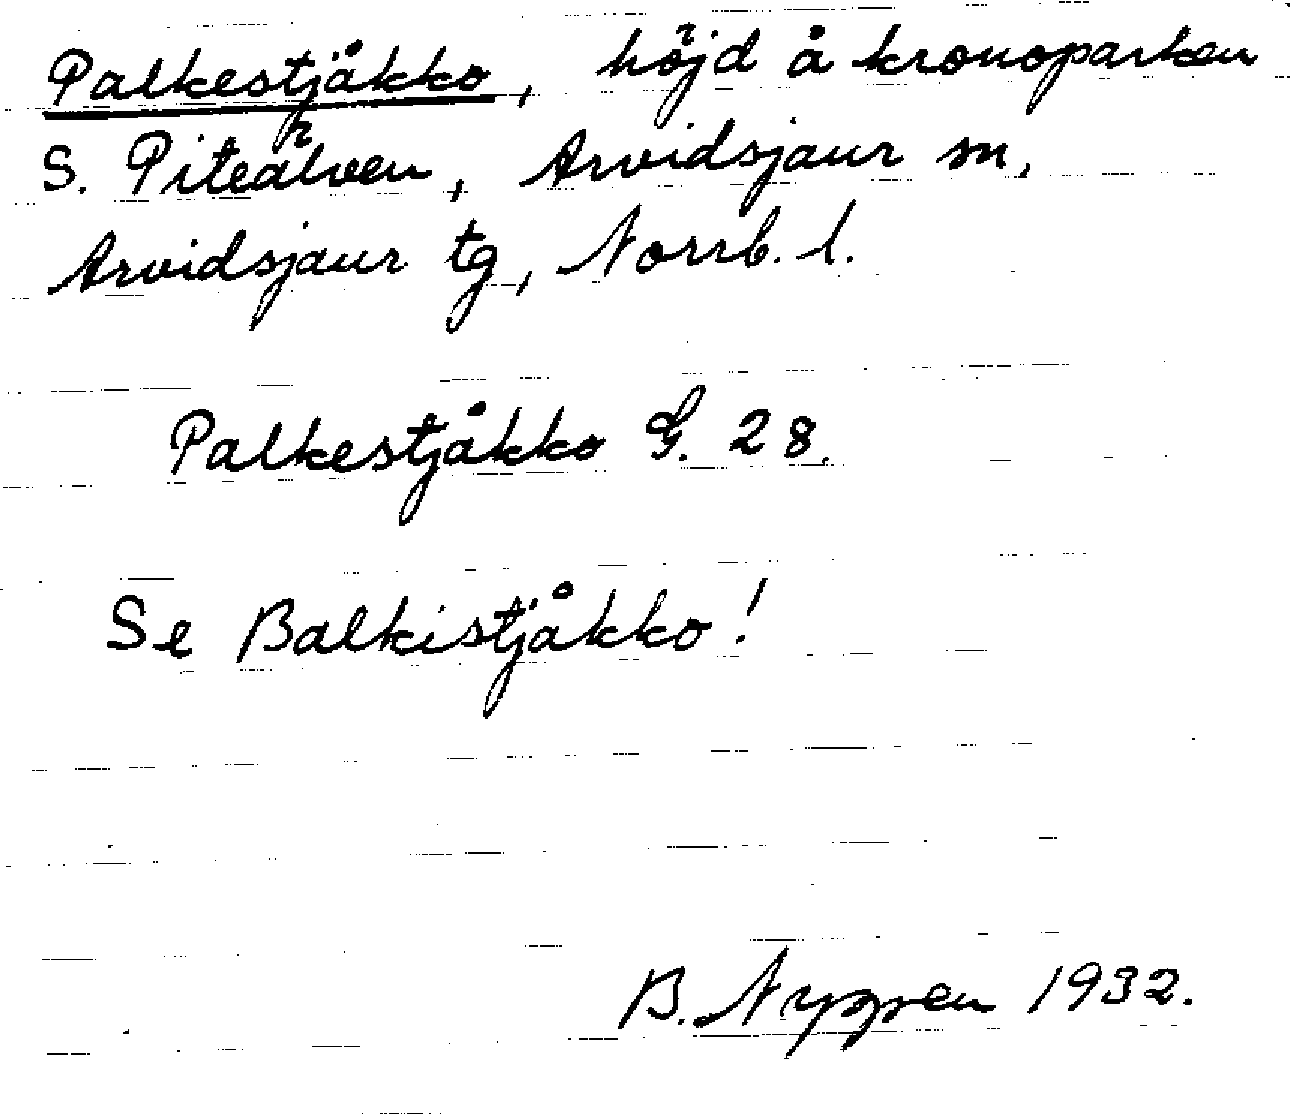 Palkestjåkko, höjd å kronoparken
S. Piteälven, Arvidsjaur sn,
Arvidsjaur tg, Norrb. l.
Palkestjåkko G. 28.
Se Balkistjåkko!
B. Nyppen 1932.